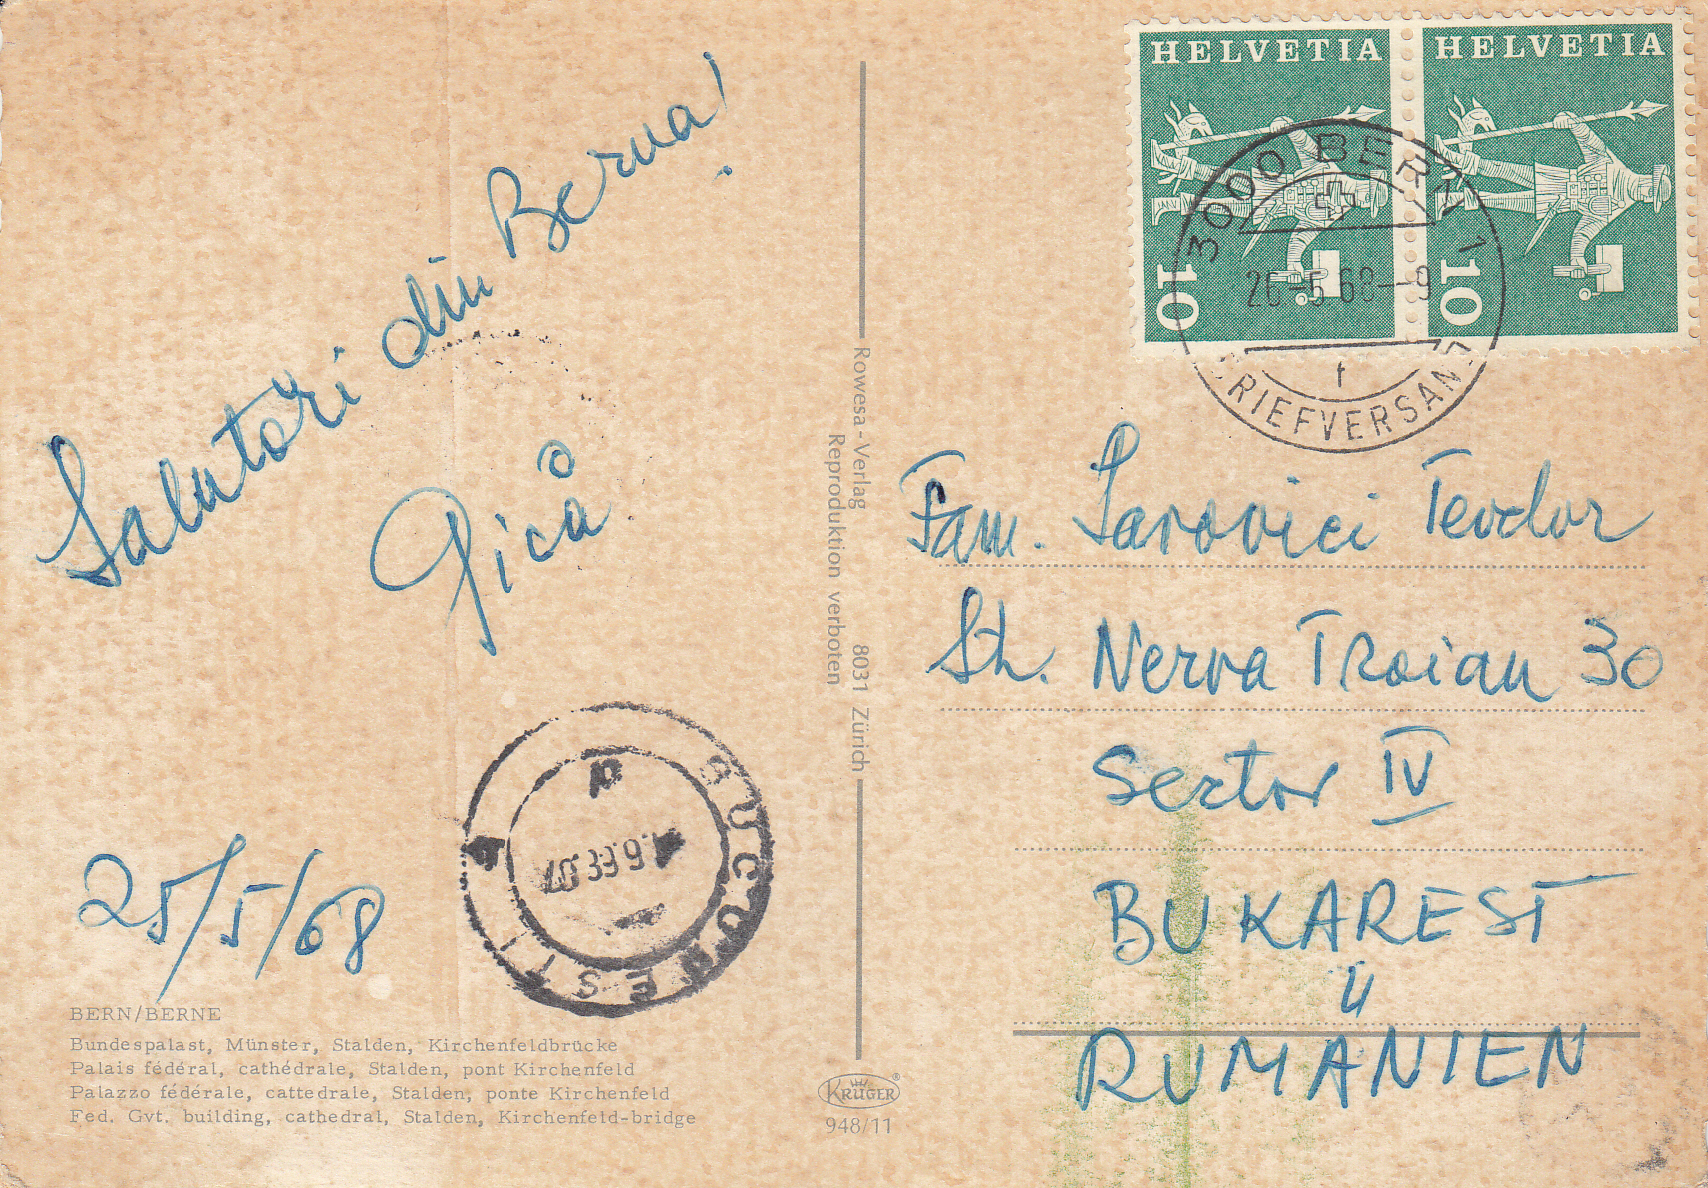 Salutări din Berna!
Gică
25/5/68
BERN/BERNE
Bundespalast, Münster, Stalden, Kirchenfeldbrücke
Palais fédéral, cathédrale, Stalden, pont Kirchenfeld
Palazzo fédérale, cattedrale, Stalden, ponte Kirchenfeld
Fed. Gvt. building, cathedral, Stalden, Kirchenfeld-bridge
BUCUREȘTI
Rowesa-Verlag 8031 Zürich
Reproduktion verboten
KRÜGER
948/11
HELVETIA
10
HELVETIA
10
3000 BERN 1
26-5.68--9
BRIEFVERSAND
Fam. Savovici Teodor
Str. Nerva Traian 30
Sector IV
BUKAREST
RUMÄNIEN